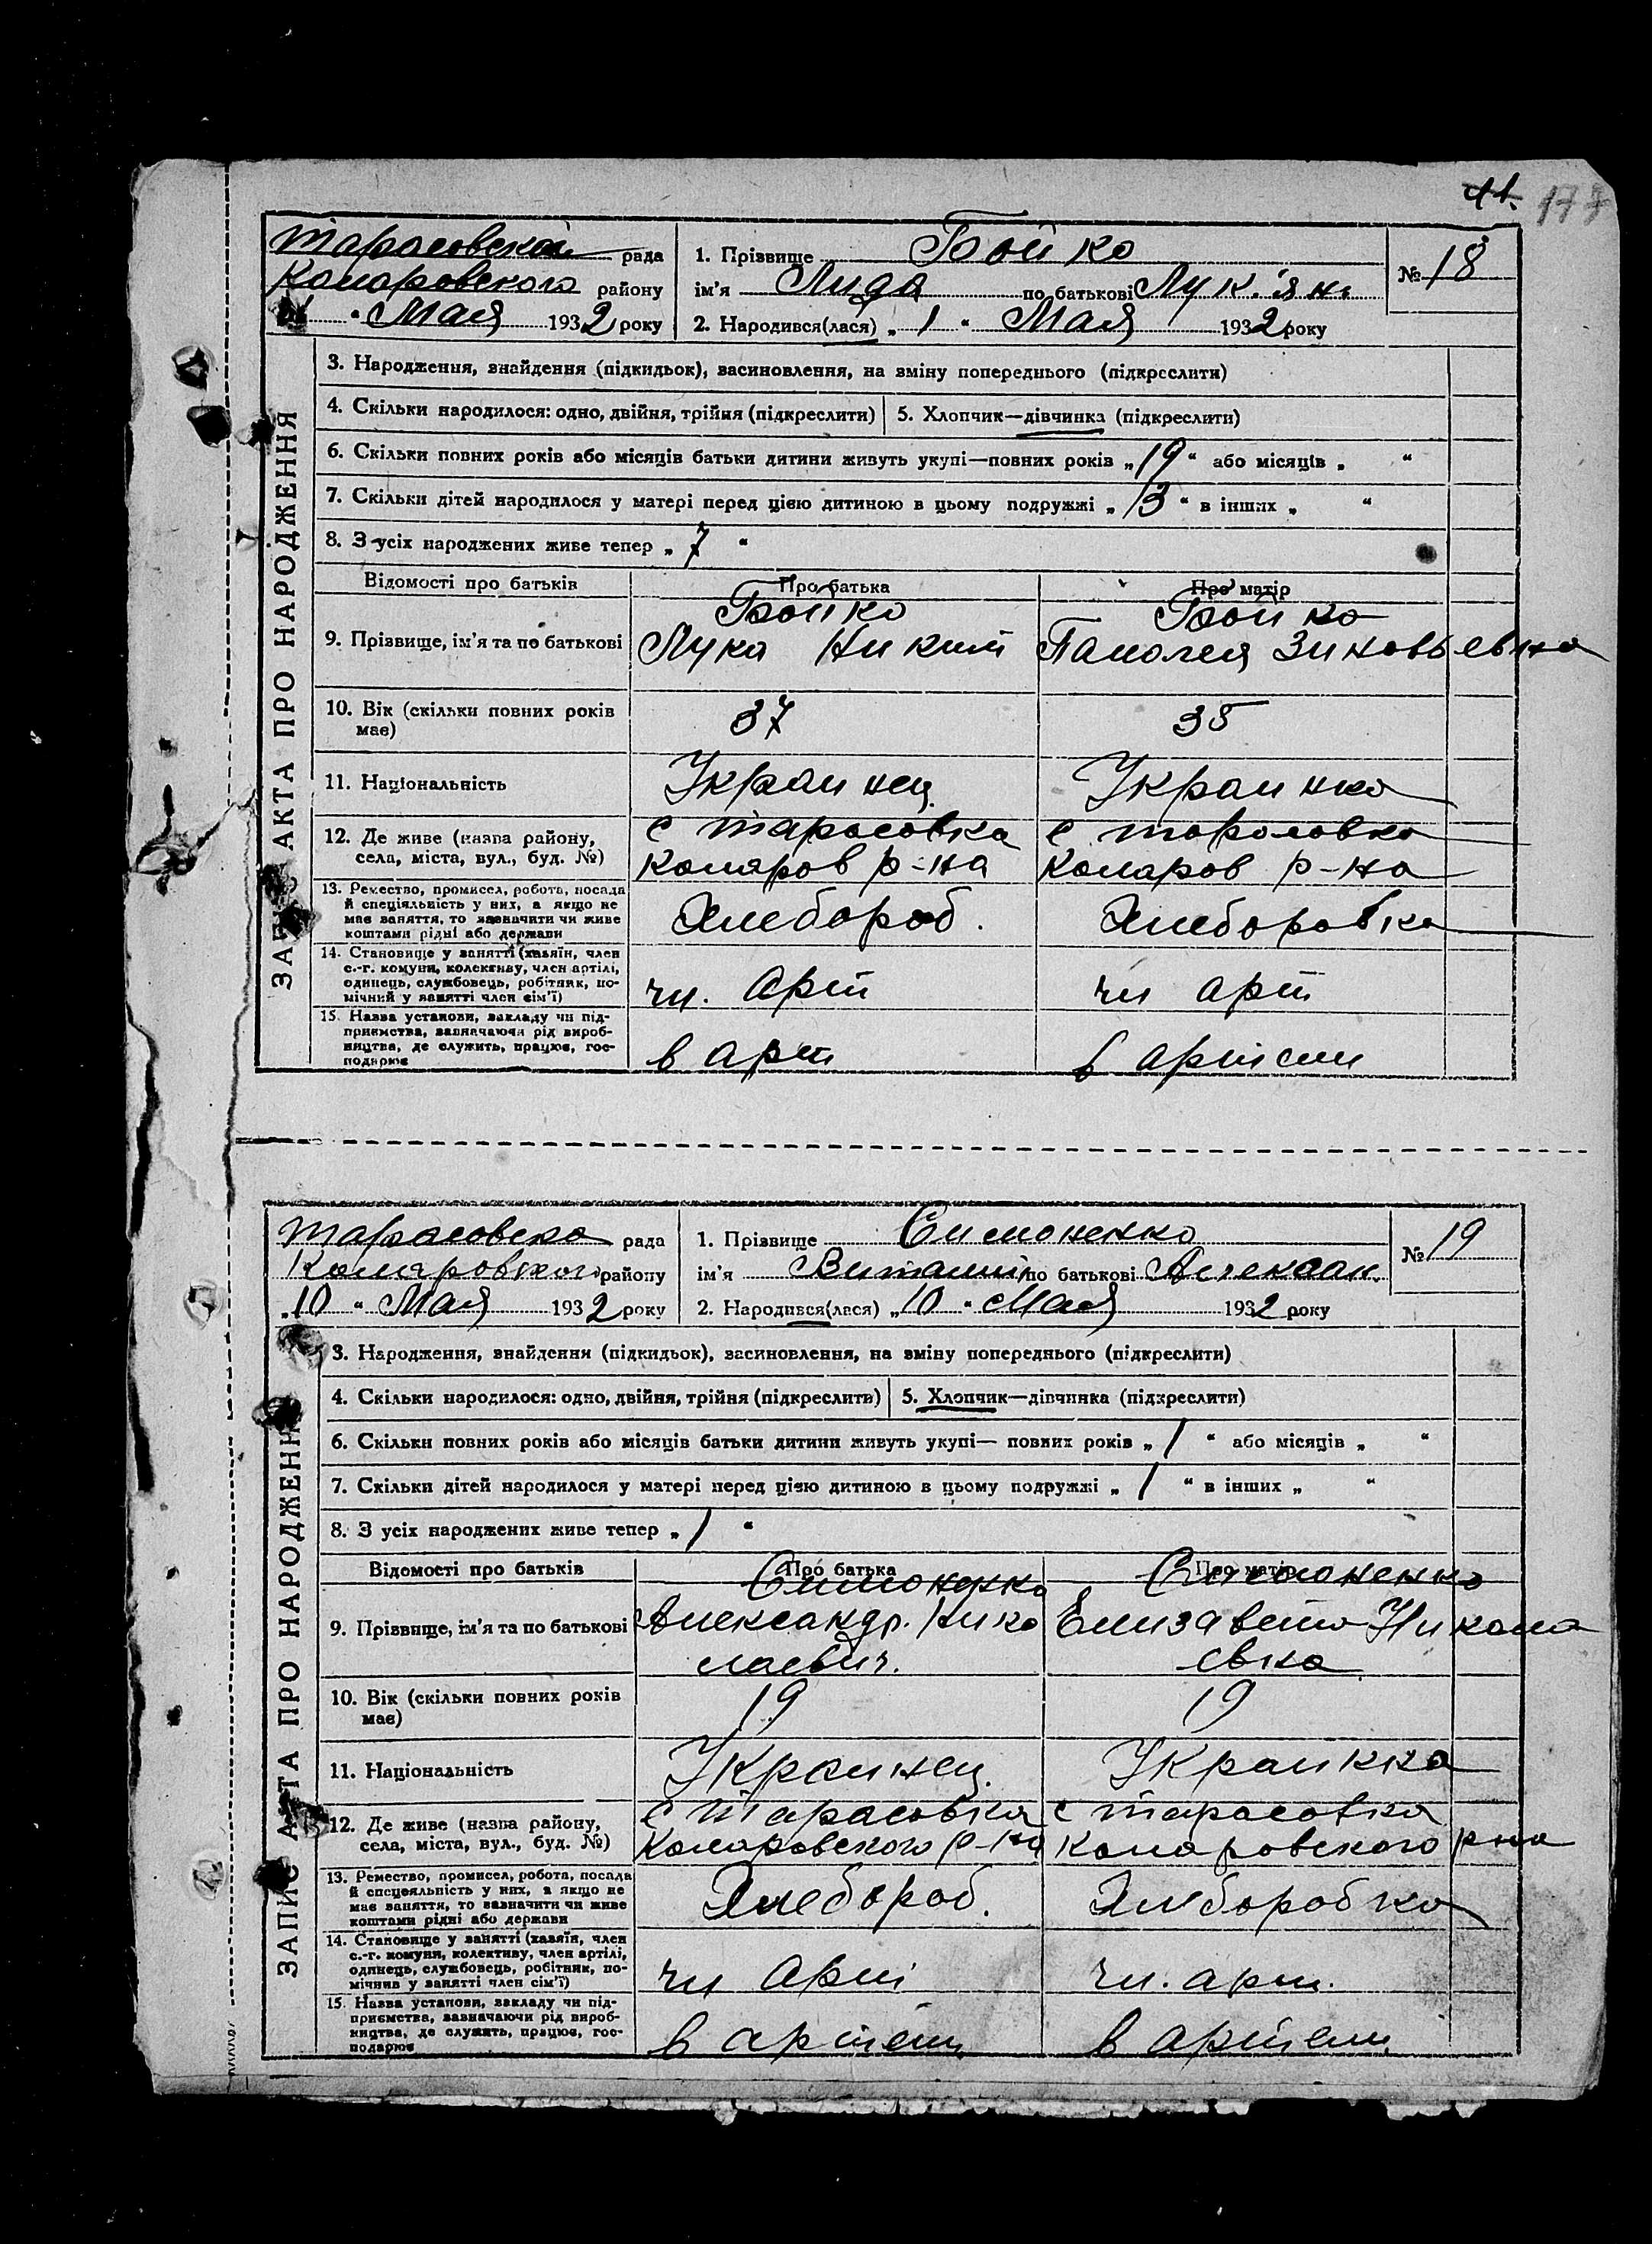 41. 177
Тарасовской рада
Коларовского району
" Мая 1932 року
1. Прізвище Бойко
ім'я Лида по батькові Лук'ян.
2. Народився(лася) „1" Мая 1932 року
№ 18
ЗАПИС АКТА ПРО НАРОДЖЕННЯ
3. Народження, знайдення (підкидьок), засиновлення, на зміну попереднього (підкреслити)
4. Скільки народилося: одно, двійня, трійня (підкреслити) 5. Хлопчик—дівчинка (підкреслити)
6. Скільки повних років або місяців батьки дитини живуть укупі—повних років „19" або місяців „ "
7. Скільки дітей народилося у матері перед цією дитиною в цьому подружжі „13" в інших „ "
8. З усіх народжених живе тепер „7"
Відомості про батьків Про батька Про матір
Бойко Бойко
9. Прізвище, ім'я та по батькові Лука Никит Зиновьевна
10. Вік (скільки повних років 37 35
має)
11. Національність Украинец Украинка
12. Де живе (назва району, с Тарасовка с Тарасовка
села, міста, вул., буд. №) Коляров р-на Коларов р-на
13. Ремество, промисел, робота, посада
й спеціяльність у них, а якщо не Хлебороб. Хлеборобка
має заняття, то зазначити чи живе
коштами рідні або держави
14. Становище у занятті (хазяїн, член
с.-г. комуни, колективу, член артілі,
одинець, службовець, робітник, по- чл. арт чл арт
мічний у занятті член сім'ї)
15. Назва установи, закладу чи під-
приємства, зазначаючи рід вироб-
ництва, де служить, працює, гос- в арт в артели
подарює
Тарасовска рада
Коляровского району
„10" Мая 1932 року
1. Прізвище Симоненко
ім'я Виталий по батькові Александ.
2. Народився(лася) „10" Мая 1932 року
№ 19
ЗАПИС АКТА ПРО НАРОДЖЕННЯ
3. Народження, знайдення (підкидьок), засиновлення, на зміну попереднього (підкреслити)
4. Скільки народилося: одно, двійня, трійня (підкреслити) 5. Хлопчик—дівчинка (підкреслити)
6. Скільки повних років або місяців батьки дитини живуть укупі— повних років „1" або місяців „ "
7. Скільки дітей народилося у матері перед цією дитиною в цьому подружжі „1" в інших „ "
8. З усіх народжених живе тепер „1"
Відомості про батьків Про батька Про матір
Симоненко Симоненко
9. Прізвище, ім'я та по батькові Александр. Нико Елизавета Никола
лаевич. евна
10. Вік (скільки повних років 19 19
має)
11. Національність Украинец. Украинка
12. Де живе (назва району, с Тарасовка с Тарасовка
села, міста, вул., буд. №) Коларовского р-на Коларовского рна
13. Ремество, промисел, робота, посада
й спецеяльність у них, а якщо не Хлебороб. Хлеборобка
має заняття, то зазначити чи живе
коштами рідні або держави
14. Становище у занятті (хазяїн, член
с.-г. комуни, колективу, член артілі,
одинець, службовець, робітник, по- чл арт чл. арт.
мічния у занятті член сім'ї)
15. Назва установи, закладу чи під-
приємства, зазначаючи рід вироб-
ництва, де служить, працює, гос- в артели в артели.
подарює